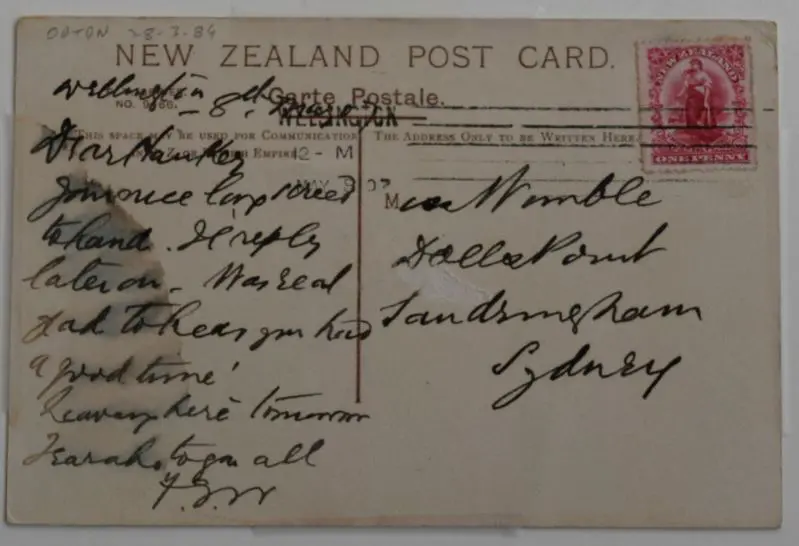 28-3-84
NEW ZEALAND POST CARD.
Carte Postale.
Wellington
8th
NO.
WELLINGTON
THIS SPACE MAY BE USED FOR COMMUNICATION
THE ADDRESS ONLY TO BE WRITTEN HERE
EMPIRE
12 - M
MAY 8 07
NEW ZEALAND
ONE PENNY
Dear
your nice long screed
to hand. I'll reply
later on - Was real
glad to hear you had
a good time!
Leaving here tomorrow
to you all
M
Womble
Dolls Point
Sandringham
Sydney